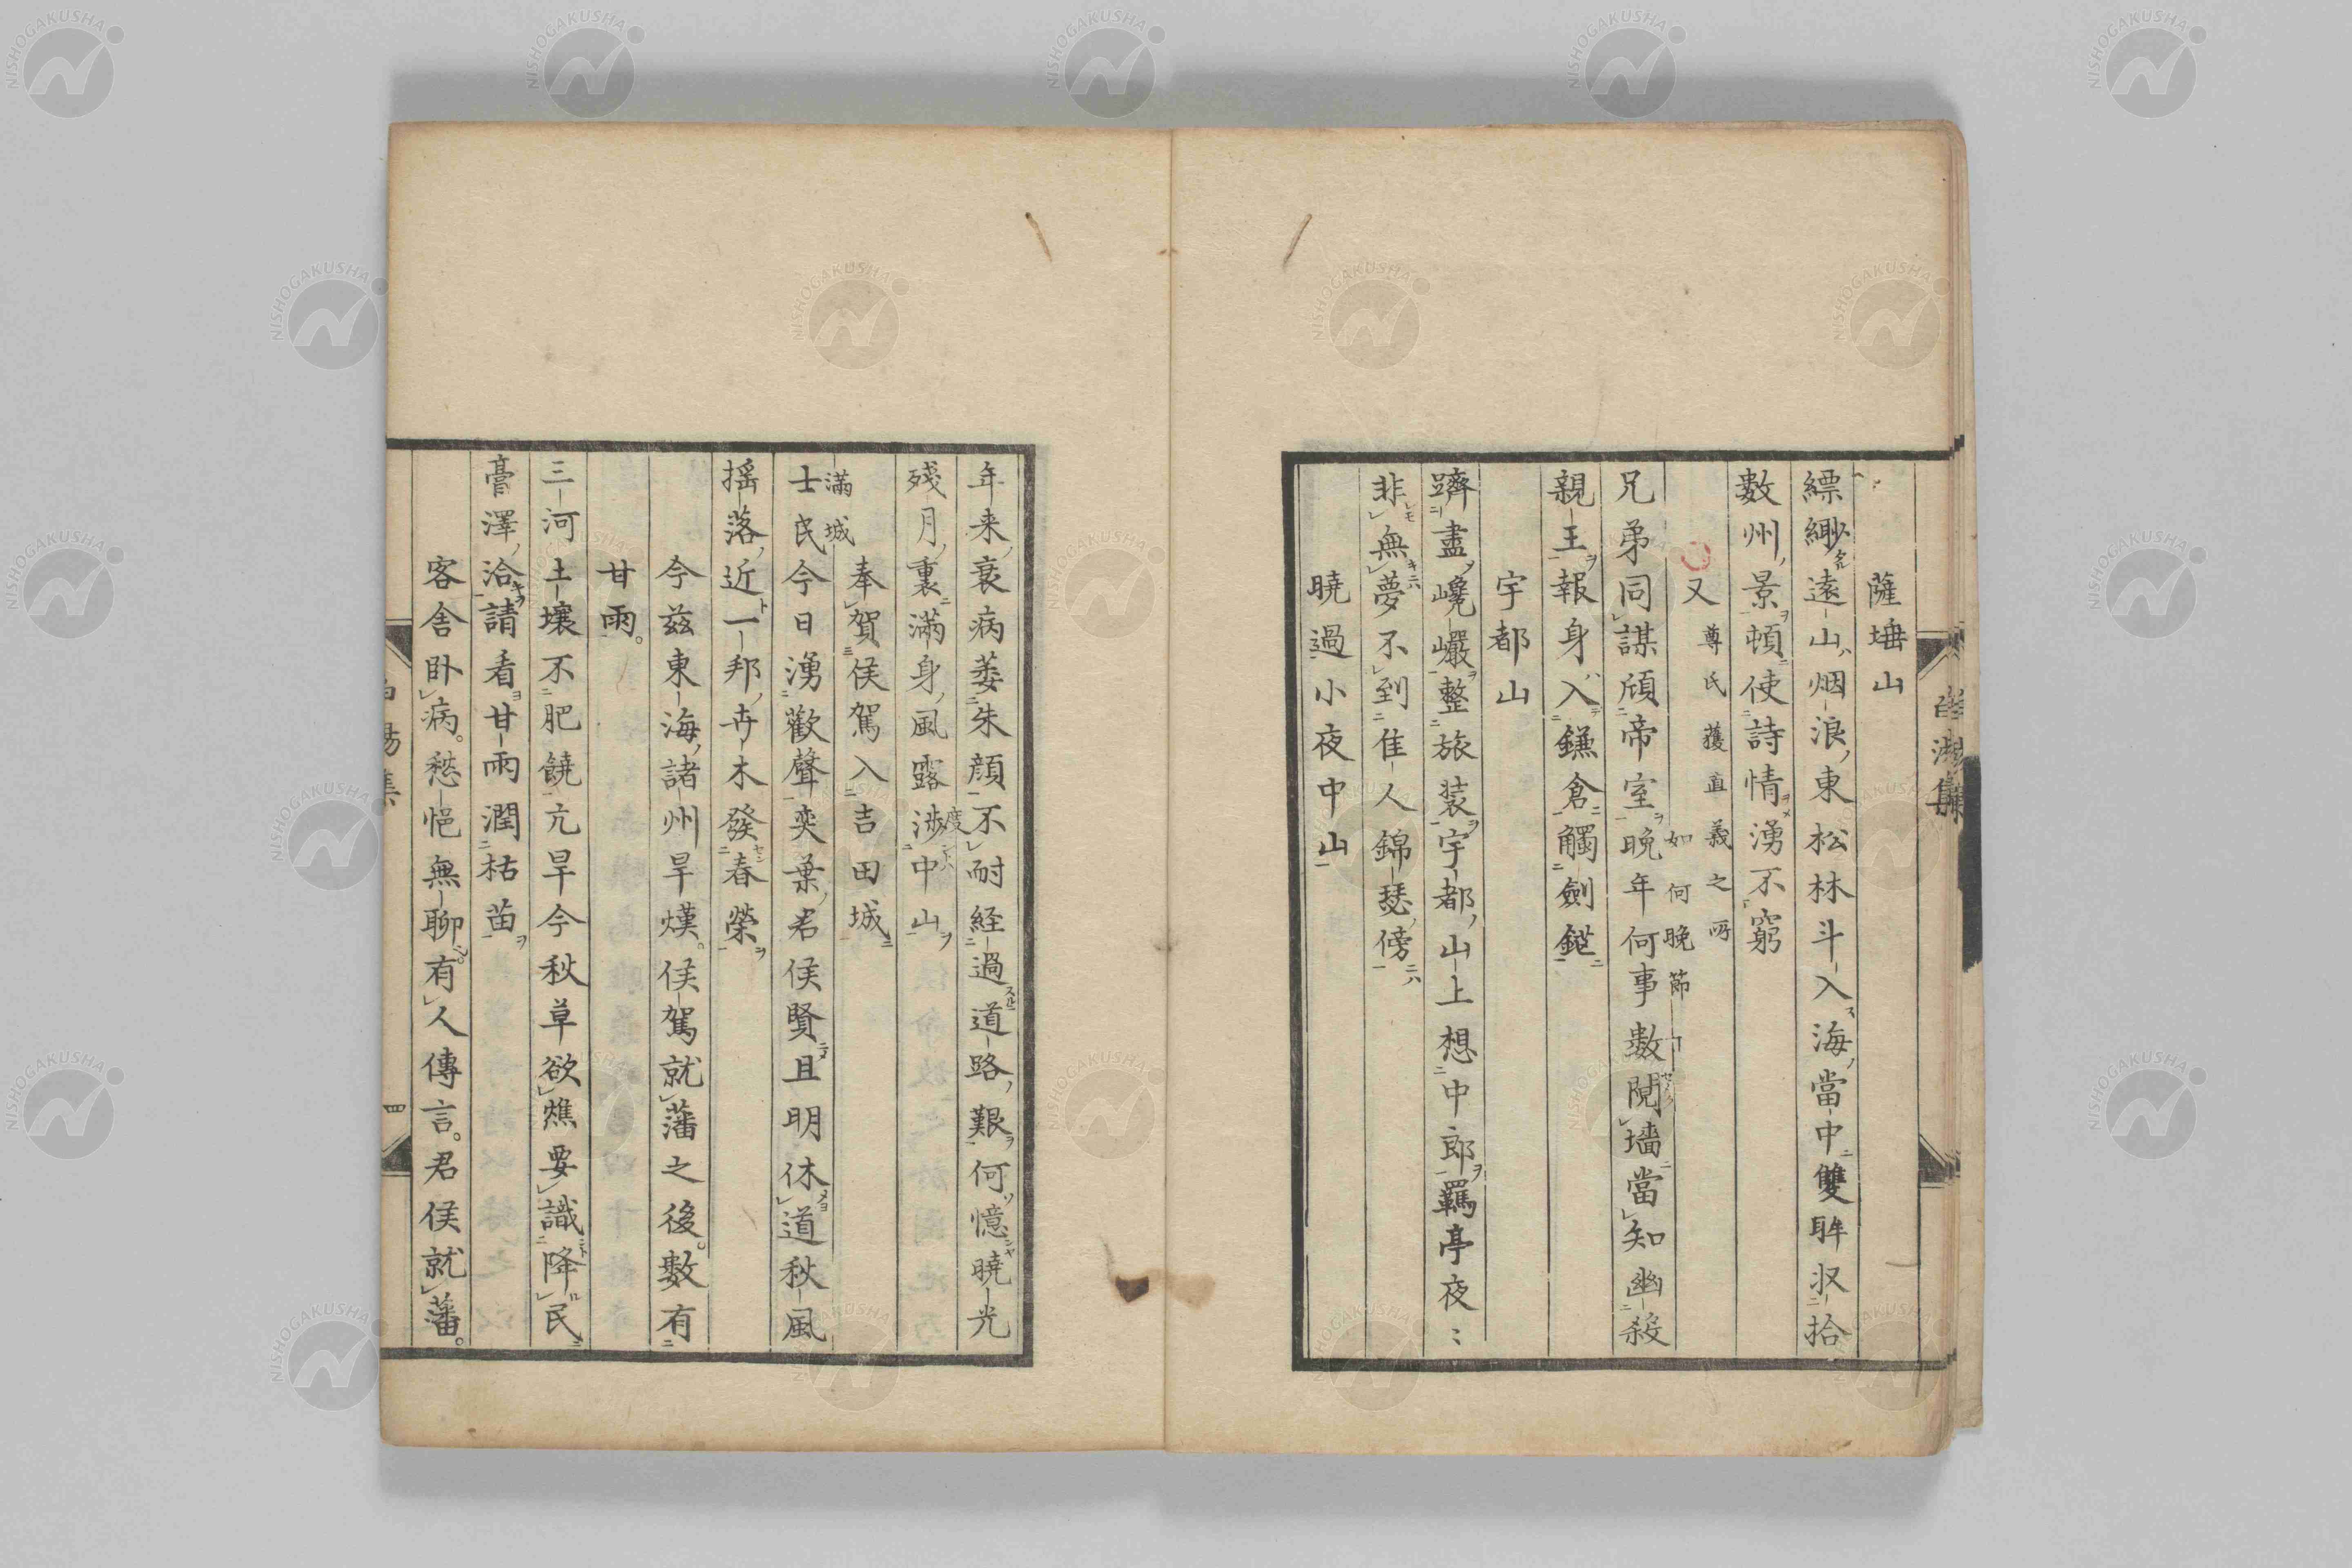 薩埵山
縹緲遠山烟浪東松林斗入海當中雙眸収拾
數州景頓使詩情湧不窮
又 尊氏獲直義之所
兄弟同謀頎帝室晩年何事數鬩墻當知幽殺
如何晩節
親王報身入鎌倉觸劍鋩
宇都山
躋盡巉巖整旅装宇都山上想中郎羈亭夜〻
非無夢不到佳人錦瑟傍
暁過小夜中山
年来衰病萎朱顔不耐経過道路艱何憶暁光
残月裏満身風露渉中山
度
奉賀侯駕入吉田城
士民今日湧歡聲奕葉君侯賢且明休道秋風
滿城
揺落近一邦卉木發春榮
今茲東海諸州旱熯。侯駕就藩之後。數有
甘雨。
三河土壤不肥饒亢旱今秋草欲燋要識降民
膏澤洽請看甘雨潤枯苗
客舎卧病。愁悒無聊。有人傳言。君侯就藩。
四
NISHOGAKUSHA